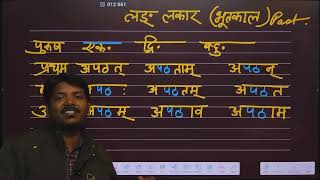 012 061
लङ् लकार (भूतकाल) Past.
पुरुष एक. द्वि. बहु.
प्रथम अपठत् अपठताम् अपठन्
अपठः अपठतम् अपठत
अपठम् अपठाव अपठाम